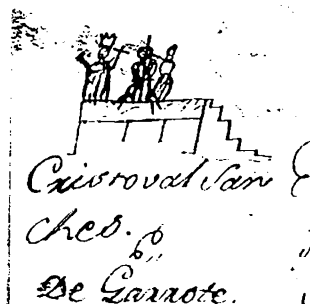 Cristoval San
ches.
De Garrote.